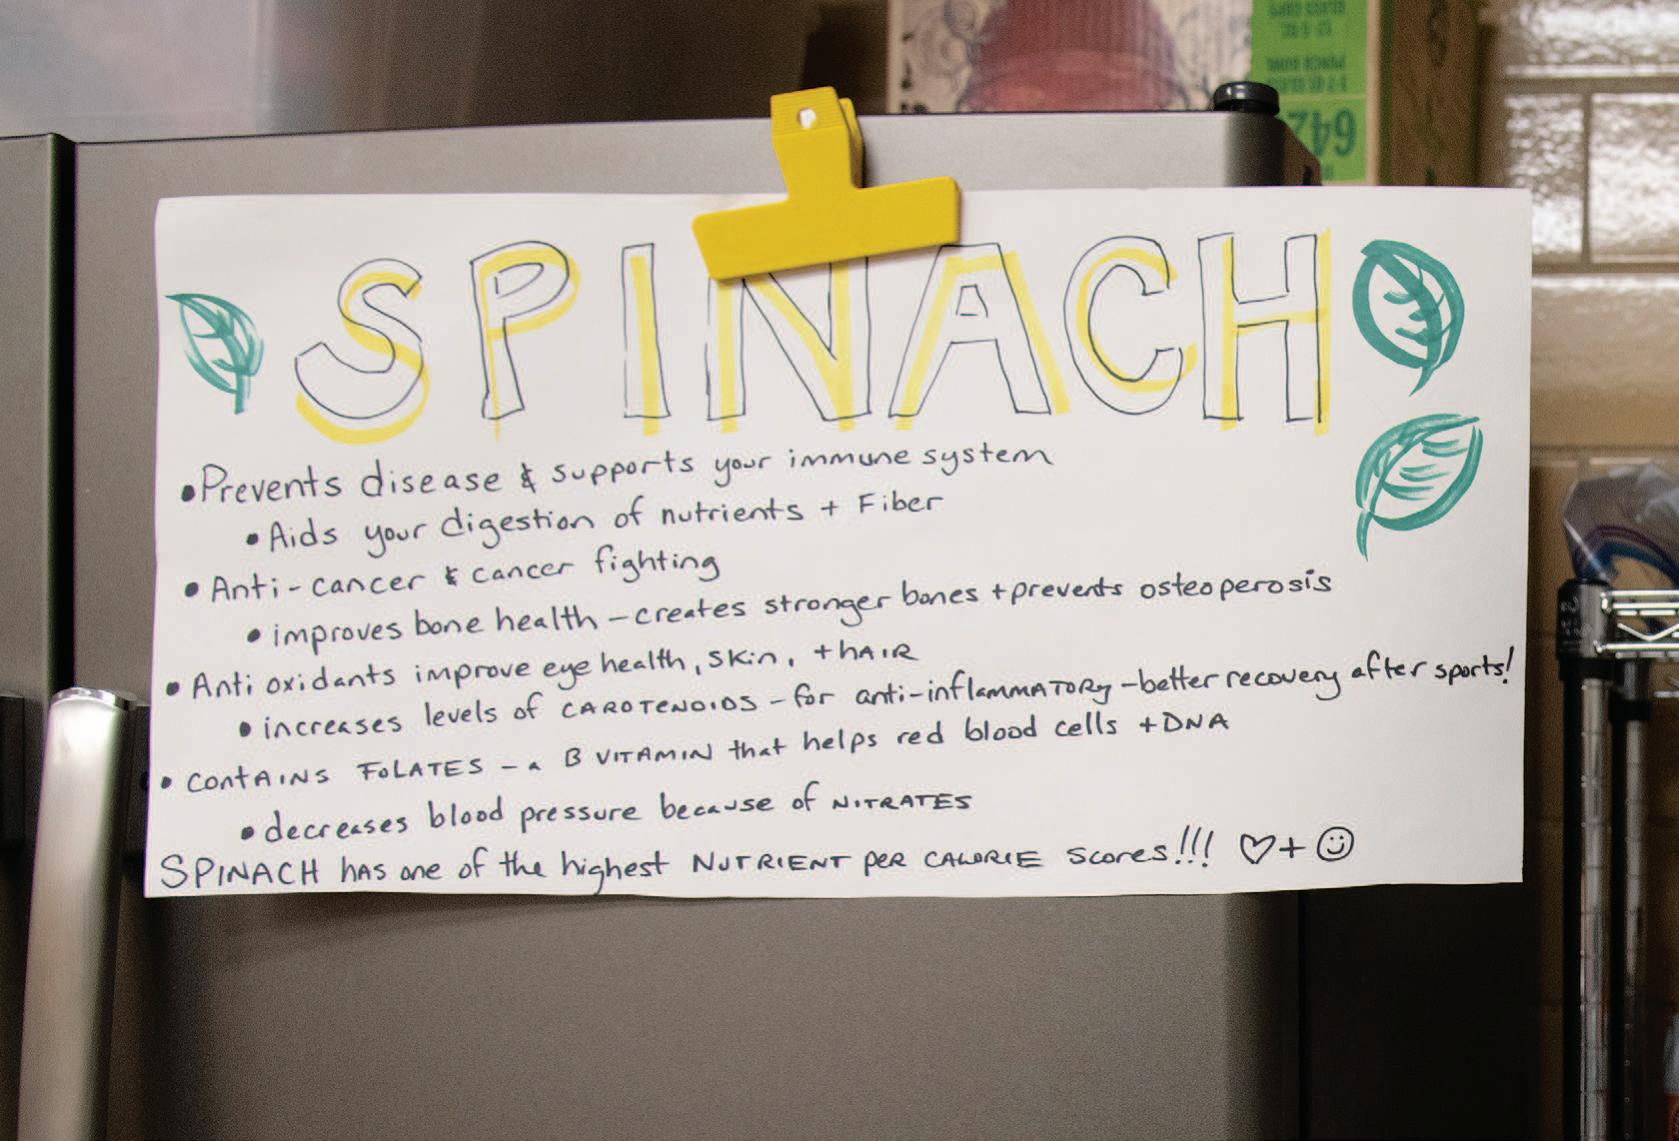 GLASS CUPS
12 5 OZ.
PUNCH BOWL
642
SPINACH
•Prevents disease & supports your immune system
•Aids your digestion of nutrients + Fiber
•Anti-cancer & cancer fighting
•improves bone health - creates stronger bones + prevents osteoperosis
•Anti oxidants improve eye health, skin, + hAIR
•increases levels of CAROTENOIDS - for anti-inflAMMATORy - better recovery after sports!
•contAINS FoLATES - a B VITAMIN that helps red blood cells + DNA
•decreases blood pressure because of NITRATES
SPINACH has one of the highest NUTRIENT per CALORIE scores!!! ♡+☺